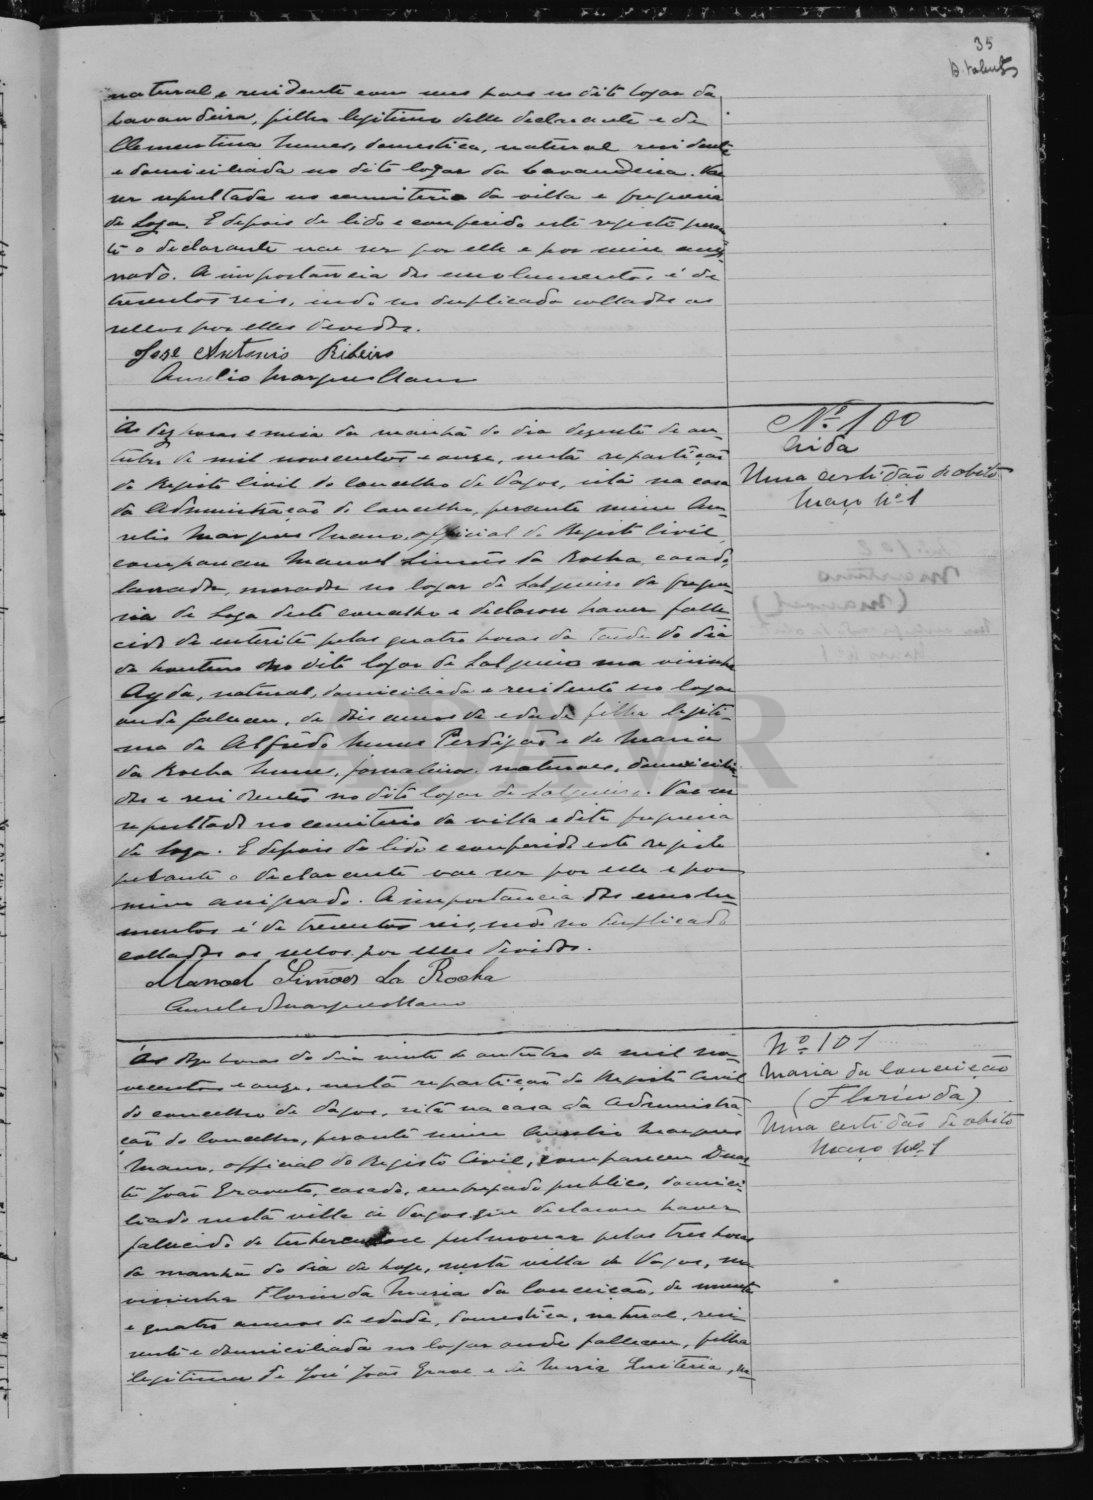 35
natural e residente com seus paes no dito logar da
Lavandeira, filho legitimo delle declarante e de
Clementina Nunes, domestica, natural residente
e domiciliada no dito logar da Lavandeira. Vae
ser sepultada no cemiterio da villa e freguesia
de Soza. E depois de lido e conferido este registo peran-
te o declarante vae ser por elle e por mim assi-
nado. A importancia dos emolumentos é de
trezentos reis, indo no duplicado collados os
sellos por elles devidos.
José Antonio Ribeiro
Aurelio Marques Mano
Nº 100
Aida
Uma certidão de obito
Maço nº 1
Ás dez horas e meia da manhã do dia dezenete de ou-
tubro de mil novecentos e onze, nesta repartição
do Registo Civil do concelho de Vagos, sita na casa
da Administração do Concelho, perante mim Au-
relio Marques Mano, official do Registo Civil,
compareceu Manoel Simões da Rocha, casado,
lavrador, morador no logar de Salgueiro da fregue-
sia de Soza deste concelho e declarou haver falle-
cido de enterite pelas quatro horas da tarde do dia
de hontem no dito logar de Salgueiro sua visinha
Ayda, natural, domiciliada e residente no logar
onde faleceu, de dois annos de edade filha legiti-
ma de Alfredo Nunes Perdigão e de Maria
da Rocha Nunes, jornaleiros, naturaes, domicilia-
dos e residentes no dito logar de Salgueiro. Vae ser
sepultado no cemiterio da villa e dita freguesia
de Soza. E depois de lido e conferido este registo
perante o declarante vae ser por elle e por
mim assignado. A importancia dos emolu-
mentos é de trezentos reis, indo no duplicado
collados os sellos por elles devidos.
Manoel Simões da Rocha
Aurelio Marques Mano
Nº 101
Maria da Conceição
(Florinda)
Uma certidão de obito
Maço nº 1
Ás doze horas do dia vinte de outubro de mil no-
vecentos e onze, nesta repartição do Registo Civil
do concelho de Vagos, sita na casa da Administra-
ção do Concelho, perante mim Aurelio Marques
Mano, official do Registo Civil, compareceu Duar-
te João Gravato, casado, empregado publico, domici-
liado nesta villa de Vagos que declarou haver
falecido de tuberculose pulmonar pelas tres horas
da manhã do dia de hoje, nesta villa de Vagos, sua
visinha Florinda Maria da Conceição, de noventa
e quatro annos de edade, domestica, natural, resi-
dente e domiciliada no logar onde falleceu, filha
legitima de José João Grave e de Maria Quiteria, na-
ADAVR